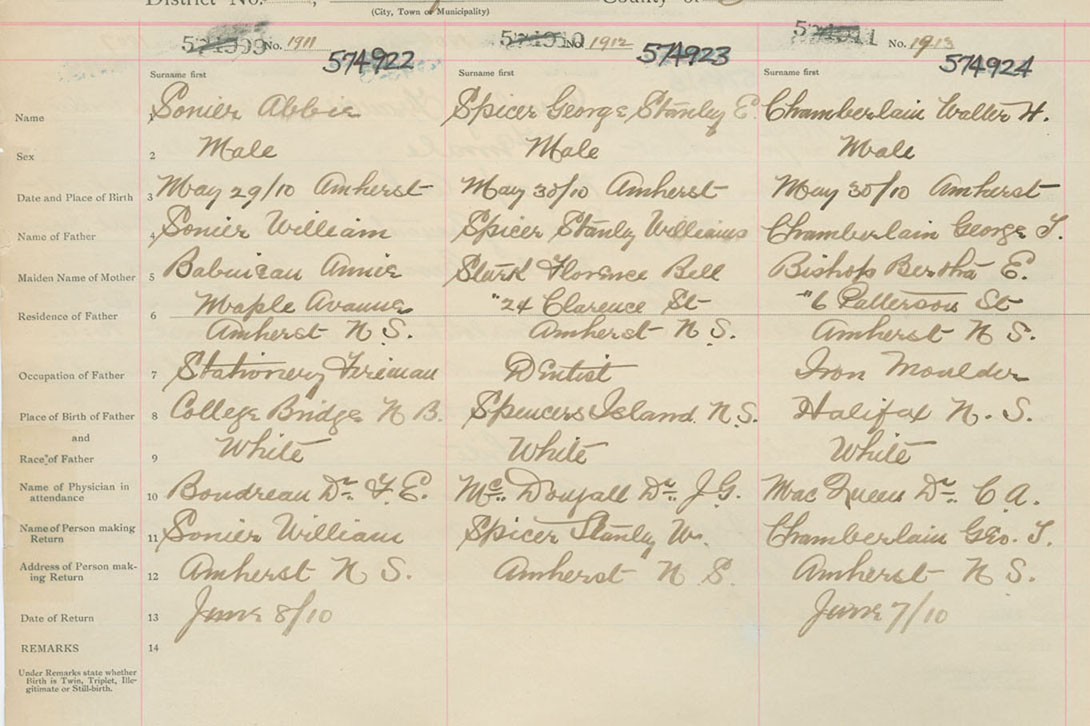 District No. County of
(City, Town or Municipality)
No. 1911 No. 1912 No. 1913
574922 574923 574924
Surname first Surname first Surname first
Name Sonier Abbie Spicer George Stanley E. Chamberlain Walter H.
Sex 2 Male Male Male
Date and Place of Birth 3 May 29/10 Amherst May 30/10 Amherst May 30/10 Amherst
Name of Father 4 Sonier William Spicer Stanly Williams Chamberlain George T.
Maiden Name of Mother 5 Annie Stark Florence Bell Bishop Bertha E.
Residence of Father 6 Maple Avanue "24 Clarence St "6 Patterson St
Amherst N S. Amherst N S. Amherst N S.
Occupation of Father 7 Stationery Fireman Dentist Iron Moulder
Place of Birth of Father 8 College Bridge N B. Spencers Island N.S. Halifax N. S.
and
Race of Father 9 White White White
Name of Physician in attendance 10 Boudreau Dr. F. E. Mc. Dougall Dr. J. G. Mac Queen Dr. C A.
Name of Person making Return 11 Sonier William Spicer Stanly Wm. Chamberlain Geo. T.
Address of Person mak-ing Return 12 Amherst N S. Amherst N S. Amherst N S.
Date of Return 13 June 8/10 June 7/10
REMARKS 14
Under Remarks state whether
Birth is Twin, Triplet, Ille-
gitimate or Still-birth.